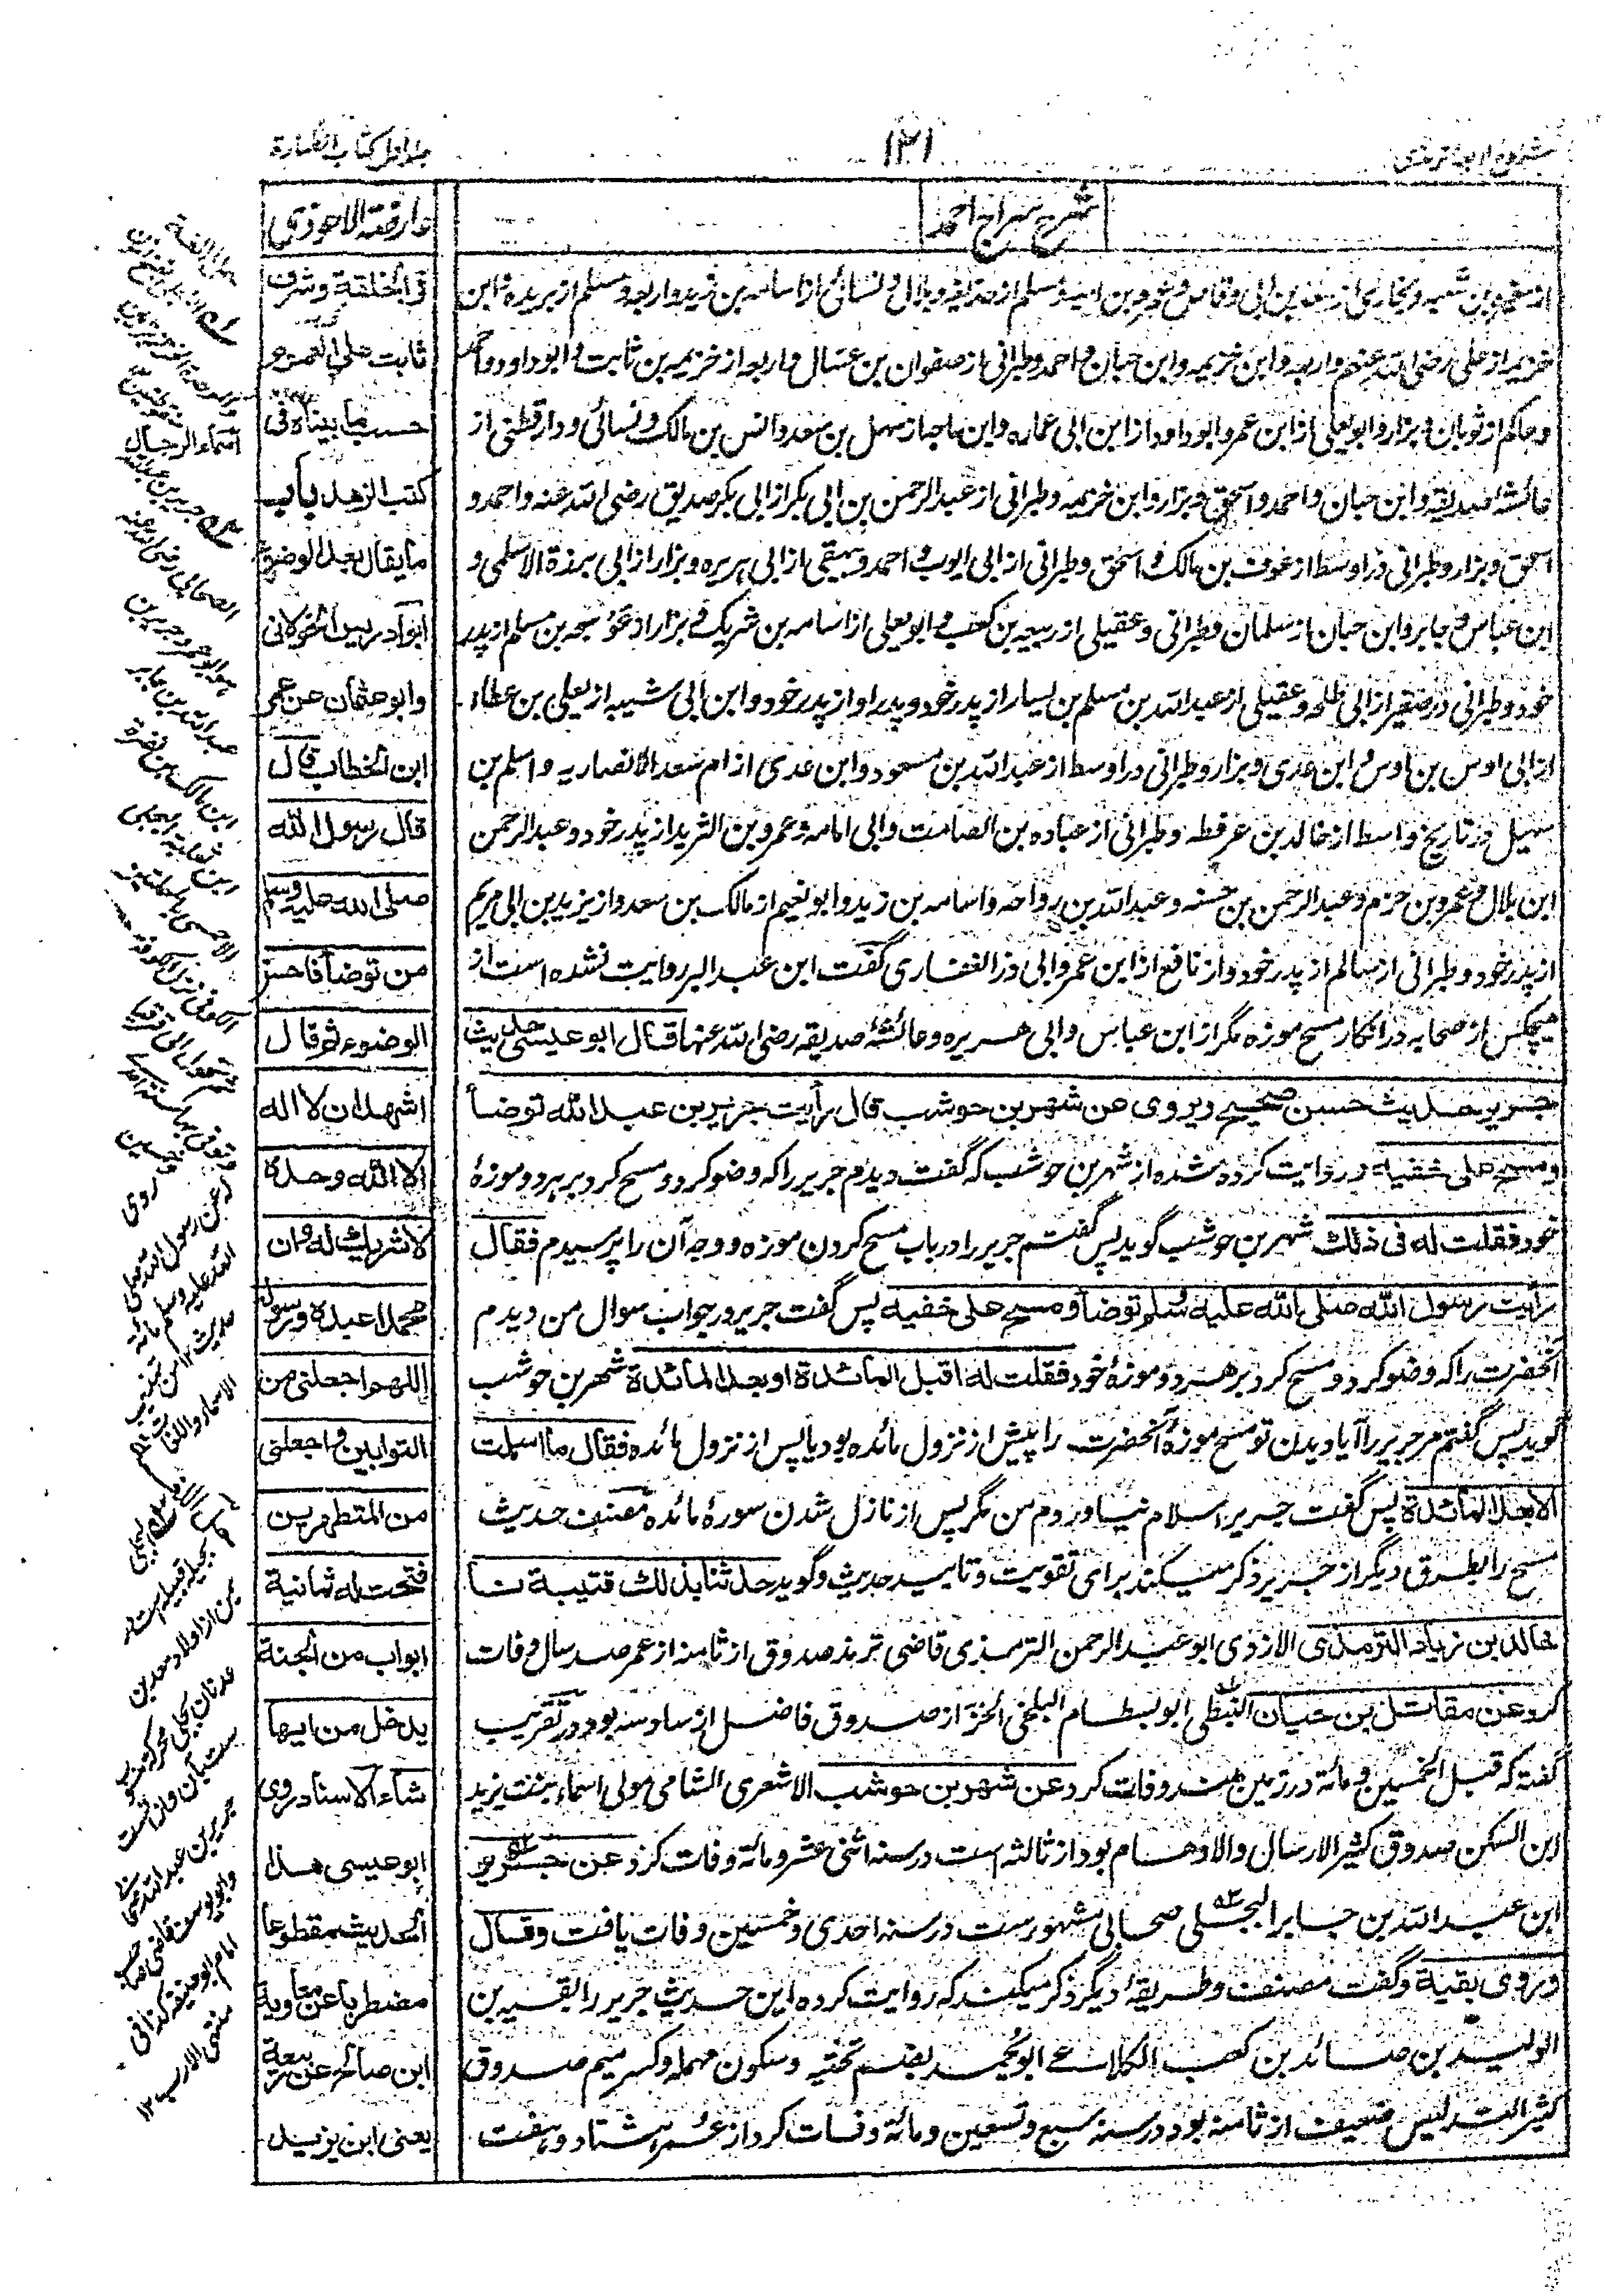 شروح اربعہ ترمذی
۱۲۱
جلد اول کتاب الطهارة
شرح سراج احمد
از مغیرہ بن شعبہ وبخاری از سعد بن ابی وقاص وعمرو بن امیہ ومسلم از حذیفہ وبلال ونسائی از اسامہ بن زید واربعہ ومسلم از بریدہ وابن
خزیمہ از علی رضی اللہ عنہم واربعہ وابن خزیمہ وابن حبان واحمد وطبرانی از صفوان بن عسال واربعہ از خزیمہ بن ثابت وابو داود واحمد
وحاکم از ثوبان وبزار وابو یعلی از ابن عمر وابوداود از ابن ابی عمارہ وابن ماجہ از سہل بن سعد وانس بن مالک ونسائی ودارقطنی از
عائشہ صدیقہ وابن حبان واحمد واسحق وبزار وابن خزیمہ وطبرانی از عبدالرحمن بن ابی بکر از ابی بکر صدیق رضی اللہ عنہ واحمد و
اسحق وبزار وطبرانی در اوسط از عوف بن مالک واسحق وطبرانی از ابی ایوب واحمد وبیہقی از ابی ہریرہ وبزار از ابی برزة الاسلمی و
ابن عباس وجابر وابن حبان از سلمان وطبرانی وعقیلی از ربیعہ بن کعب وابو یعلی از اسامہ بن شریک وبزار از عوسجہ بن مسلم از پدر
خود وطبرانی در صغیر از ابی طلحہ وعقیلی از عبداللہ بن مسلم بن یسار از پدر خود وپدر او از پدر خود وابن ابی شیبہ از یعلی بن عطاء
از ابی اوس بن اوس وابن عدی وبزار وطبرانی در اوسط از عبداللہ بن مسعود وابن عدی از ام سعد الانصاریہ واسلم بن
سہیل در تاریخ واسط از خالد بن عرفطہ وطبرانی از عبادہ بن الصامت وابی امامہ وعمرو بن الثرید از پدر خود وعبدالرحمن
ابن بلال وعمرو بن حزم وعبدالرحمن بن حسنہ وعبداللہ بن رواحہ واسامہ بن زید وابو نعیم از مالک بن سعد واز یزید بن ابی مریم
از پدر خود وطبرانی از سالم از پدر خود واز نافع از ابن عمر وابی ذر الغفاری گفت ابن عبدالبر روایت نشدہ است از
ہیچکس از صحابہ در انکار مسح موزہ مگر از ابن عباس وابی ہریرہ وعائشہ صدیقہ رضی اللہ عنہا قال ابو عیسی حدیث
جریر حدیث حسن صحیح ویروی عن شهر بن حوشب قال رأیت جریر بن عبد الله توضأ
ومسح علی خفیه وروایت کردہ شدہ از شہر بن حوشب کہ گفت دیدم جریر را کہ وضو کرد ومسح کرد بر ہر دو موزۂ
خود فقلت له فی ذلك شہر بن حوشب گوید پس گفتم جریر را در باب مسح کردن موزہ ووجہ آن را پرسیدم فقال
رأیت رسول الله صلی الله علیه وسلم توضأ ومسح علی خفیه پس گفت جریر در جواب سوال من دیدم
آنحضرت را کہ وضو کرد ومسح کرد بر ہر دو موزۂ خود فقلت له اقبل المائدة او بعد المائدة شهر بن حوشب
گوید پس گفتم مر جریر را آیا دیدن تو مسح موزۂ آنحضرت را پیش از نزول مائدہ بود یا پس از نزول مائدہ فقال ما اسلمت
الا بعد المائدة پس گفت جریر اسلام نیاوردم من مگر پس از نازل شدن سورۂ مائدہ مصنف حدیث
مسح را بطرق دیگر از جریر ذکر میکند برای تقویت وتایید حدیث وگوید حدثنا بذلك قتیبة نا
خالد بن زیاد الترمذی الازدی ابو عبدالرحمن الترمذی قاضی ترمذ صدوق از ثامنہ از عمر صد سال وفات
کرد عن مقاتل بن حیان النبطی ابو بسطام البلخی الخزاز صدوق فاضل از سادسہ بود در تقریب
گفتہ کہ قبل الخمسین ومائة در زمین ہند وفات کرد عن شهر بن حوشب الاشعری الشامی مولی اسماء بنت یزید
ابن السکن صدوق کثیر الارسال والاوہام بود از ثالثہ است در سنہ اثنی عشر ومائة وفات کرد عن جریر
ابن عبداللہ بن جابر البجلی صحابی مشہورست در سنہ احدی وخمسین وفات یافت وقال
وروی بقیة وگفت مصنف وطریقہ دیگر ذکر میکند کہ روایت کردہ این حدیث جریر را بقیہ بن
الولید بن صائد بن کعب الکلاعی ابو یحمد بضم تحتیہ وسکون مہملہ وکسر میم صدوق
کثیر التدلیس ضعیف از ثامنہ بود در سنہ سبع وتسعین ومائة وفات کرد از عمر ہشتاد وہفت
عارضة الاحوذی
فی الخلقة وشرف
ثابت علی العموم
حسب ما بیناه فی
کتب الزهد باب
ما یقال بعد الوضوء
ابو ادریس الخولانی
وابو عثمان عن عمر
ابن الخطاب قال
قال رسول الله
صلی الله علیه وسلم
من توضأ فاحسن
الوضوء ثم قال
اشهد ان لا اله
الا الله وحده
لا شریك له وان
محمدا عبده ورسوله
اللهم اجعلنی من
التوابین واجعلنی
من المتطهرین
فتحت له ثمانیة
ابواب من الجنة
یدخل من ایها
شاء الاسناد روی
ابو عیسی هذا
الحدیث مقطوعا
مضطربا عن معاویة
ابن صالح عن ربیعة
یعنی ابن یزید
اسماء الرجال
جریر بن عبد اللہ
الصحابی رضی اللہ عنہ
ہو ابو عمرو جریر بن
عبد اللہ بن جابر
ابن مالک بن نضرة
بن ثعلبة البجلی
روی
لہ عن رسول اللہ صلی
اللہ علیہ وسلم مائة
حدیث ۱۲ من تہذیب
الاسماء واللغات
بجیلہ قبیلہ است از
یمن از اولاد معد بن
عدنان بجلی محرکة منسوب
ست بآن وازانست
جریر بن عبد اللہ
وابو یوسف قاضی صاحب
امام ابو حنیفہ کذا فی
منتہی الارب ۱۲